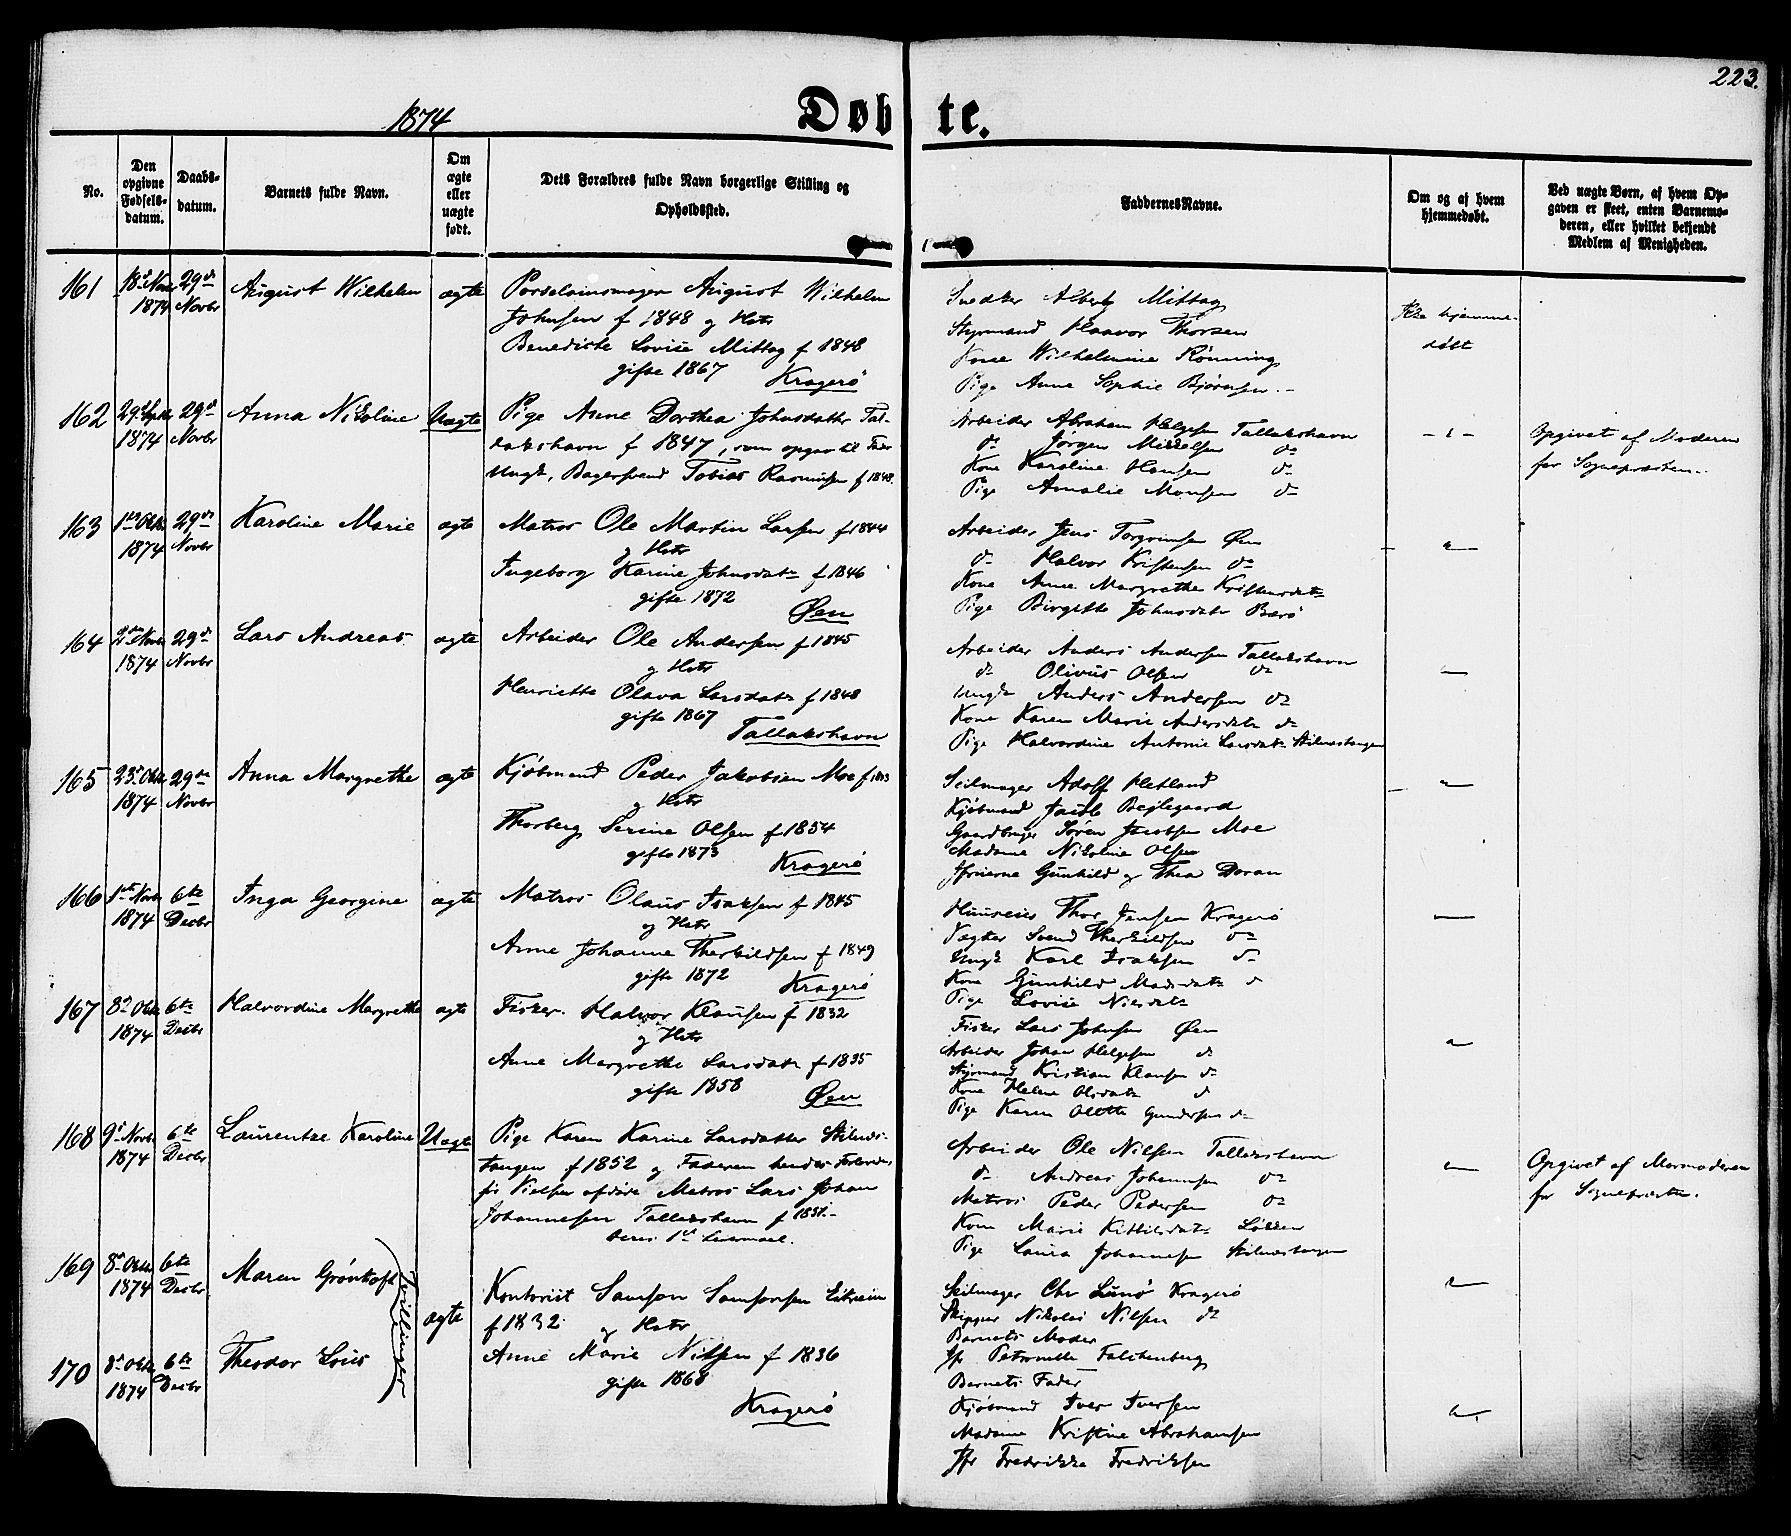 223.
1874
Døbte.
No.
Den opgivne Fødselsdatum.
Daabsdatum.
Barnets fulde Navn.
Om ægte eller uægte født.
Dets Forældres fulde Navn borgerlige Stilling og Opholdssted.
Faddernes Navne.
Om og af hvem hjemmedøbt.
Ved uægte Børn, af hvem Opgaven er skeet, enten Barnemoderen, eller hvilket bekjendt Medlem af Menigheden.
161
18de Novbr 1874
29de Novbr
August Wilhelm
ægte
August Wilhelm
Johnsen f 1848 og Hstr
Benedicte Lovise Mittag f 1848
gifte 1867 Kragerø
Snedker Albert Mittag
Styrmand Haavor Thorsen
Kone Wilhelmine Rønning
Pige Anne Sophie Bjørnsen
Ikke hjemme-
døbt
162
29de Septbr 1874
29de Novbr
Anna Nikoline
Uægte
Pige Anne Dorthea Johnsdatter Tal-
lakshavn f 1847, som opgav til Fader
Ungk, Bagersvend Tobias Rasmussen f 1848.
Arbeider Abraham Helgesen Tallakshavn
do Jørgen Mikkelsen do
Kone Karoline Hansen do
Pige Amalie Monsen do
Opgivet af Moderen
for Sognepræsten
163
1ste Oktbr 1874
29de Novbr
Karoline Marie
ægte
Matros Ole Martin Larsen f 1844
og Hstr
Ingeborg Karine Johnsdatr f 1846
gifte 1872
Øen
Arbeider Jens Torgrimsen Øen
do Halvor Kristensen do
Kone Anne Margrethe Kristensdatr
Pige Birgitte Johnsdatr Barø
164
2den Novbr 1874
29de Novbr
Lars Andreas
ægte
Arbeider Ole Andersen f 1845
og Hstr
Henriette Olava Larsdatr f 1848
gifte 1867
Tallakshavn
Arbeider Anders Andersen Tallakshavn
do Olivus Olsen do
Ungk Anders Andersen do
Kone Karen Marie Andersdatr do
Pige Halvordine Antonie Larsdatr Stilnestangen
165
23de Oktbr 1874
29de Novbr
Anna Margrethe
ægte
Kjøbmand Peder Jakobsen Moe f
og Hstr
Thorberg Serine Olsen f 1854
gifte 1873
Kragerø
Seilmager Adolf Hetland
Kjøbmand Jacob Bejlegaard
Gaardbruger Søren Jacobsen Moe
Madame Nikoline Olsen
Jfruerne Gunhild og Thea Doran
166
1ste Novbr 1874
6te Decbr
Inga Georgine
ægte
Matros Olaus Isaksen f 1845
og Hstr
Anne Johanne Therkildsen f 1849
gifte 1872
Kragerø
Huuseier Thor Jensen Kragerø
Vægter Svend Therkildsen do
Ungk Karl Isaksen do
Kone Gunhild Madsdatr do
Pige Lovise Nilsdatr
167
8de Oktbr 1874
6te Decbr
Halvordine Margrethe
ægte
Fisker Halvor Klausen f 1832
og Hstr
Anne Margrethe Larsdatr f 1835
gifte 1858
Øen
Fisker Lars Johnsen Øen
Arbeider Johan Helgesen do
Styrmand Kristian Klausen do
Kone Helene Olsdatr do
Pige Karen Olette Gundersen do
168
9de Novbr 1874
6te Decbr
Laurentze Karoline
Uægte
Pige Karen Karine Larsdatter Stilnes-
tangen f 1852 og Faderen hendes Forlovede
Matros Lars Johan
Johannesen Tallakshavn f
deres 1ste Leiermaal.
Arbeider Ole Nilsen Tallakshavn
do Andreas Johannsen do
Matros Peder Pedersen do
Kone Marie Kittilsdatr Løkken
Pige Laura Johannesen Stilnestangen
Opgivet af Mormoderen
for Sognepræsten.
169
8de Oktbr 1874
6te Decbr
Maren Grønhoft
Tvillinger
ægte
Kontorist Samson Samsonsen Eitrem
f 1832 og Hstr
Anne Marie Nilsen f 1836
gifte 1868
Kragerø
Seilmager Chr Lunø Kragerø
Skipper Nikolai Nilsen do
Barnets Moder
Jfr Petronelle Falchenberg
170
8de Oktbr 1874
6te Decbr
Theodor Louis
Barnets Fader
Kjøbmand Iver Iversen
Madame Kristine Abrahamsen
Jfr Fredrikke Fredriksen